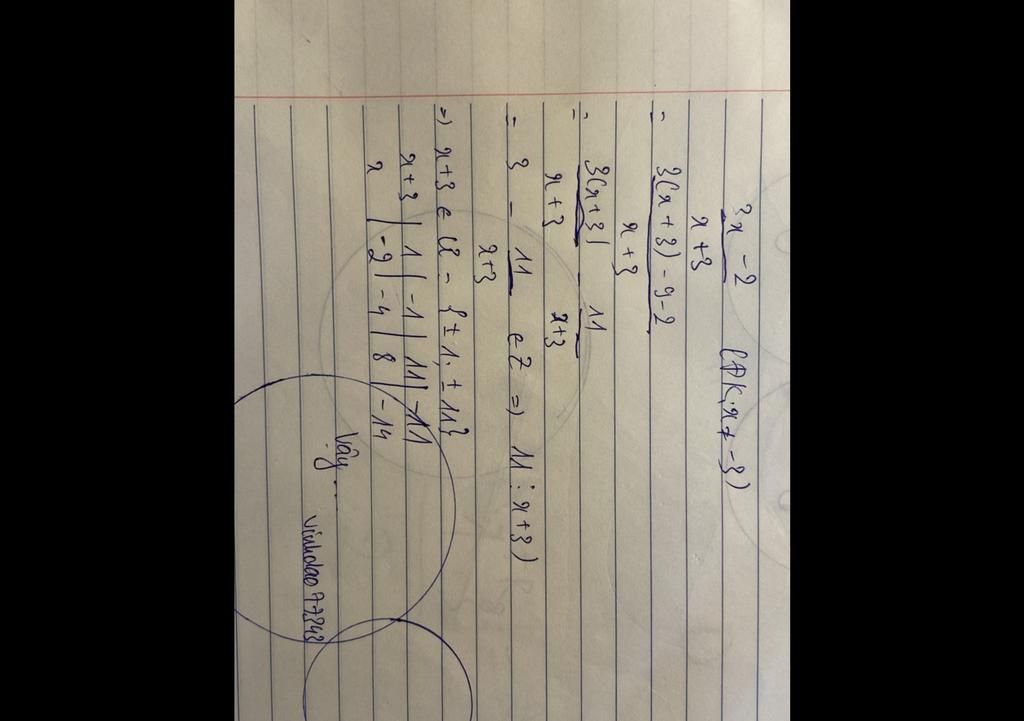 3x - 2 (ĐK: x ≠ -3)
x+3
= 3(x+3) - 9 - 2
x+3
= 3(x+3) - 11
x+3 x+3
= 3 - 11 ∈ Z => 11 ⋮ x+3)
x+3
=> x+3 ∈ Ư = {±1; ±11}
x+3 | 1 | -1 | 11 | -11
x | -2 | -4 | 8 | -14
Vậy...
vinhdao77343